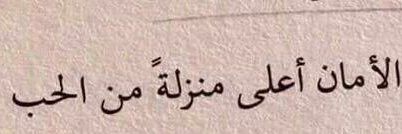 الأمان أعلى منزلةً من الحب